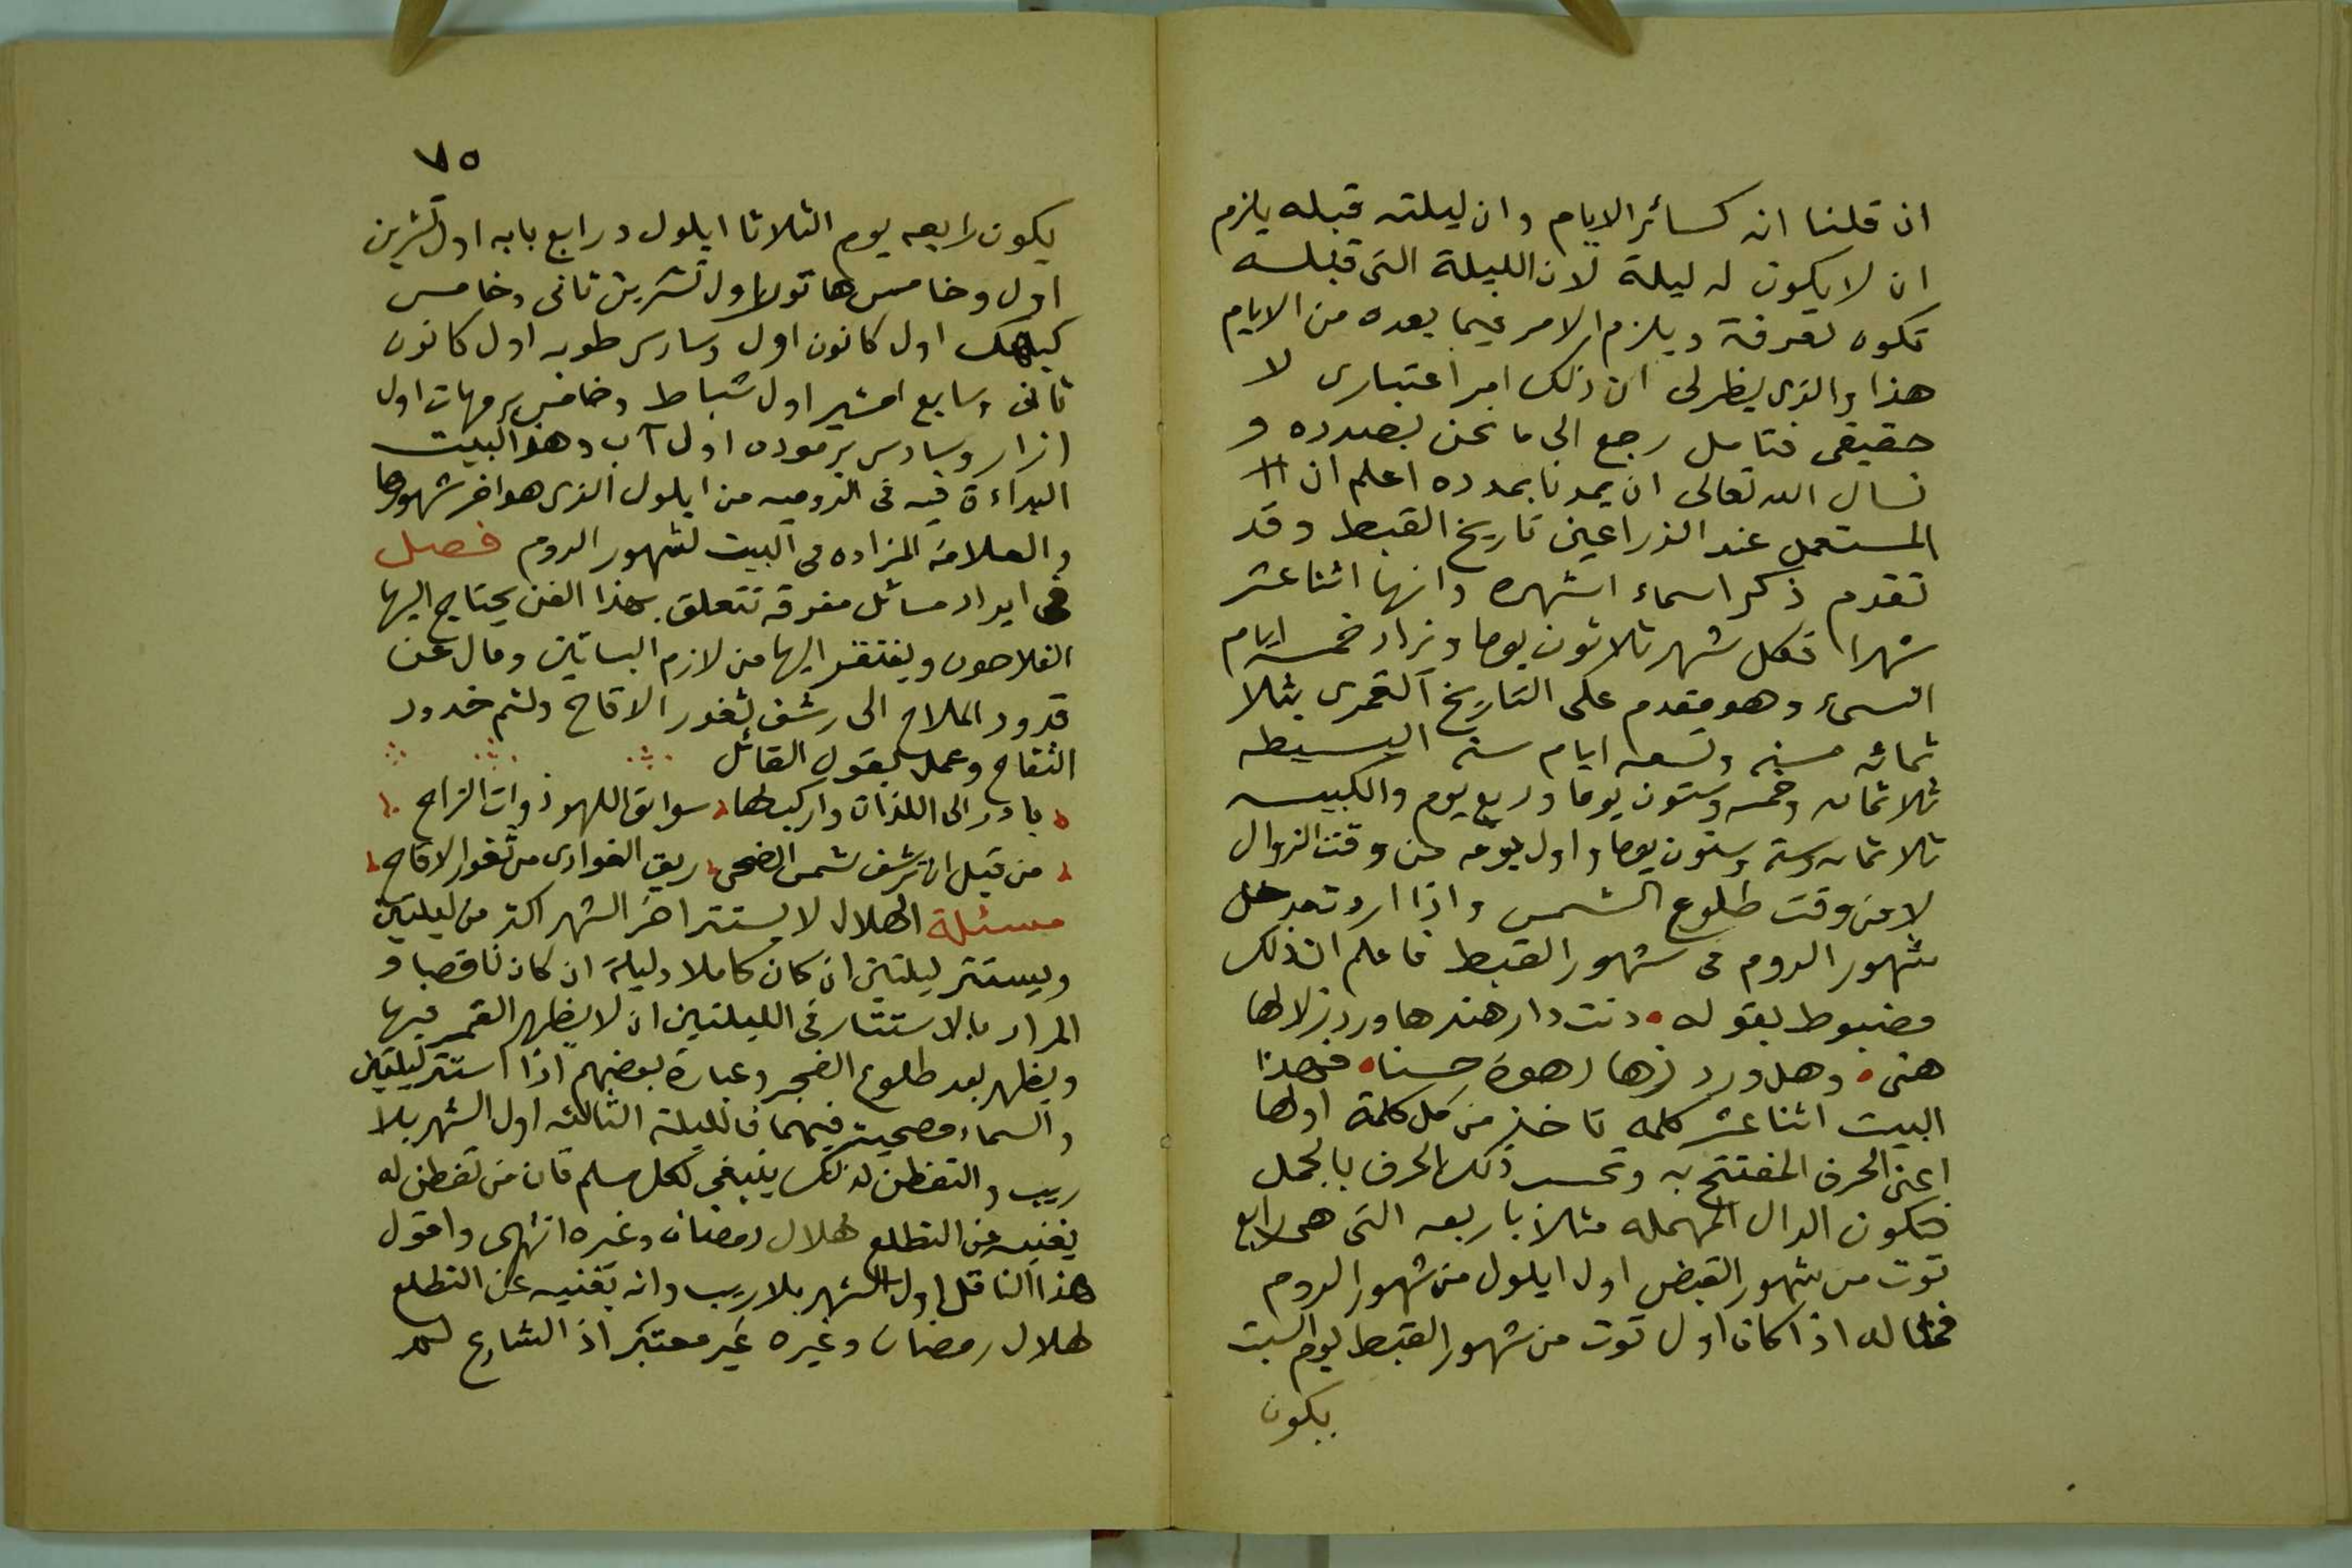 ان قلنا انه كسائر الايام وان ليلته قبله يلزم
ان لا يكون له ليلة لان الليلة التى قبله
تكون لعرفة ويلزم الامر فيما بعده من الايام
هذا والذى يظهر لى ان ذلك امر اعتبارى لا
حقيقى فتامل رجع الى ما نحن بصدده و
نسال الله تعالى ان يمدنا بمدده اعلم ان
المستعمل عند الزراعين تاريخ القبط وقد
تقدم ذكر اسماء اشهره وانها اثنا عشر
شهرا فكل شهر ثلاثون يوما ونزاد خمسه ايام
النسىء وهو مقدم على التاريخ القمرى بثلا
ثمائه سنه وتسعه ايام سنه البسيطه
ثلاثمائه وخمسه وستون يوما وربع يوم والكبيسه
ثلاثمائه وسته وستون يوما واول يومه من وقت الزوال
لا من وقت طلوع الشمس واذا اردت مدخل
شهور الروم فى شهور القبط فاعلم ان ذلك
مضبوط بقوله دنت دار هندها ورد زلالها
هنى وهل ورد زها زهوة حسناه فهذا
البيت اثنا عشر كلمه تاخذ من كل كلمة اولها
اعنى الحرف المفتتح به وتحسب ذلك الحرف بالجمل
فتكون الدال المهمله مثلا باربعه التى هى رابع
توت من شهور القبض اول ايلول من شهور الروم
فمثاله اذا كان اول توت من شهور القبط يوم السبت
يكون
٧٥
يكون رابعه يوم الثلاثا ايلول ورابع بابه اول تشرين
اول وخامس هاتور اول تشرين ثانى وخامس
كيهك اول كانون اول وسادس طوبه اول كانون
ثانى وسابع امشير اول شباط وخامس برمهات اول
ازار وسادس برموده اول آب وهذا البيت
البداءة فيه فى الروميه من ايلول الذى هو اخر شهورها
والعلامة المزاده فى البيت لشهور الروم فصل
فى ايراد مسائل مفرقه تتعلق بهذا الفن يحتاج اليها
الفلاحون ويفتقر اليها من لازم البساتين ومال عن
قدود الملاح الى رشف ثغور الاقاح ولثم خدود
التفاح وعمل بقول القائل
بادر الى اللذات واركب لها سوابق اللهو ذوات المزاح
من قبل ان ترشف شمس الضحى ريق الغوادى من ثغور الاقاح
مسئلة الهلال لا يستتر اخر الشهر اكثر من ليلتين
ويستتر ليلتين ان كان كاملا وليلة ان كان ناقصا و
المراد بالاستتار فى الليلتين ان لا يظهر القمر فيها
ويظهر بعد طلوع الفجر وعبارة بعضهم اذا استتر ليلتين
والسماء مصحيه فيهما فالليلة الثالثه اول الشهر بلا
ريب والتفطن لذلك ينبغى لكل مسلم فان من تفطن له
يغنيه عن التطلع لهلال رمضان وغيره انتهى واقول
هذا الناقل اول الشهر بلا ريب وانه يغنيه عن التطلع
لهلال رمضان وغيره غير معتبر اذ الشارع لم